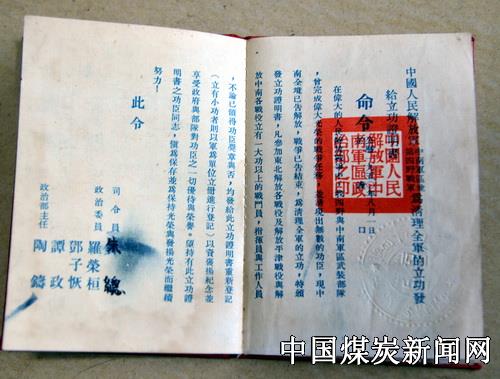 中國人民解放軍中南軍區暨第四野戰軍為清理全軍的立功發
給立功證明書
命令
八月一日
在偉大的人民
我四野與中南軍區武裝部隊
,曾完成偉大光榮的戰爭任務,並湧現出無數的功臣,現中
南全境已告解放,戰爭已告結束,為清理全軍的立功,特頒
發立功證明書,凡參加東北解放各戰役及解放平津戰役與解
放中南各戰役立有一大功以上的戰鬥員,指揮員與工作人員
,不論已領得功臣獎章與否,均發給此立功證明書重新登記
(立有小功者則以軍為單位立冊進行登記)以資褒揚紀念並
享受政府與部隊對功臣之一切優待與榮譽。望持有此立功證
明書之功臣同志,慎重保存並為保持光榮與發揚光榮而繼續
努力!
此令
司令員
政治委員 羅榮桓
鄧子恢
譚政
政治部主任 陶鑄
中國人民
解放軍中
南軍區政
中国煤炭新闻网